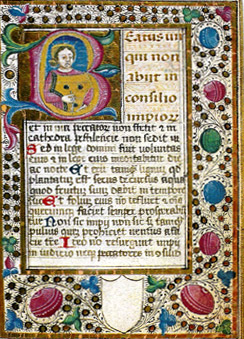 Eatus uir
qui non
abijt in
consilio
impior
et in uia peccator non stetit et in
cathedra pestilencie non sedit
Sed in lege domini fuit uoluntas
eius et in lege eius meditabitur die
ac nocte Et erit tamq lignum qd
plantatum est secus decursus aquar
quod fructum suum dabit in tempore
suo Et folium eius no defluet et omia
quecumq faciet semper prosperabu
Non sic impij non sic sed tamq
puluis quem prohiciet uentus a
terre Ideo no resurgunt impij
in iudicio neq peccatores in osilio